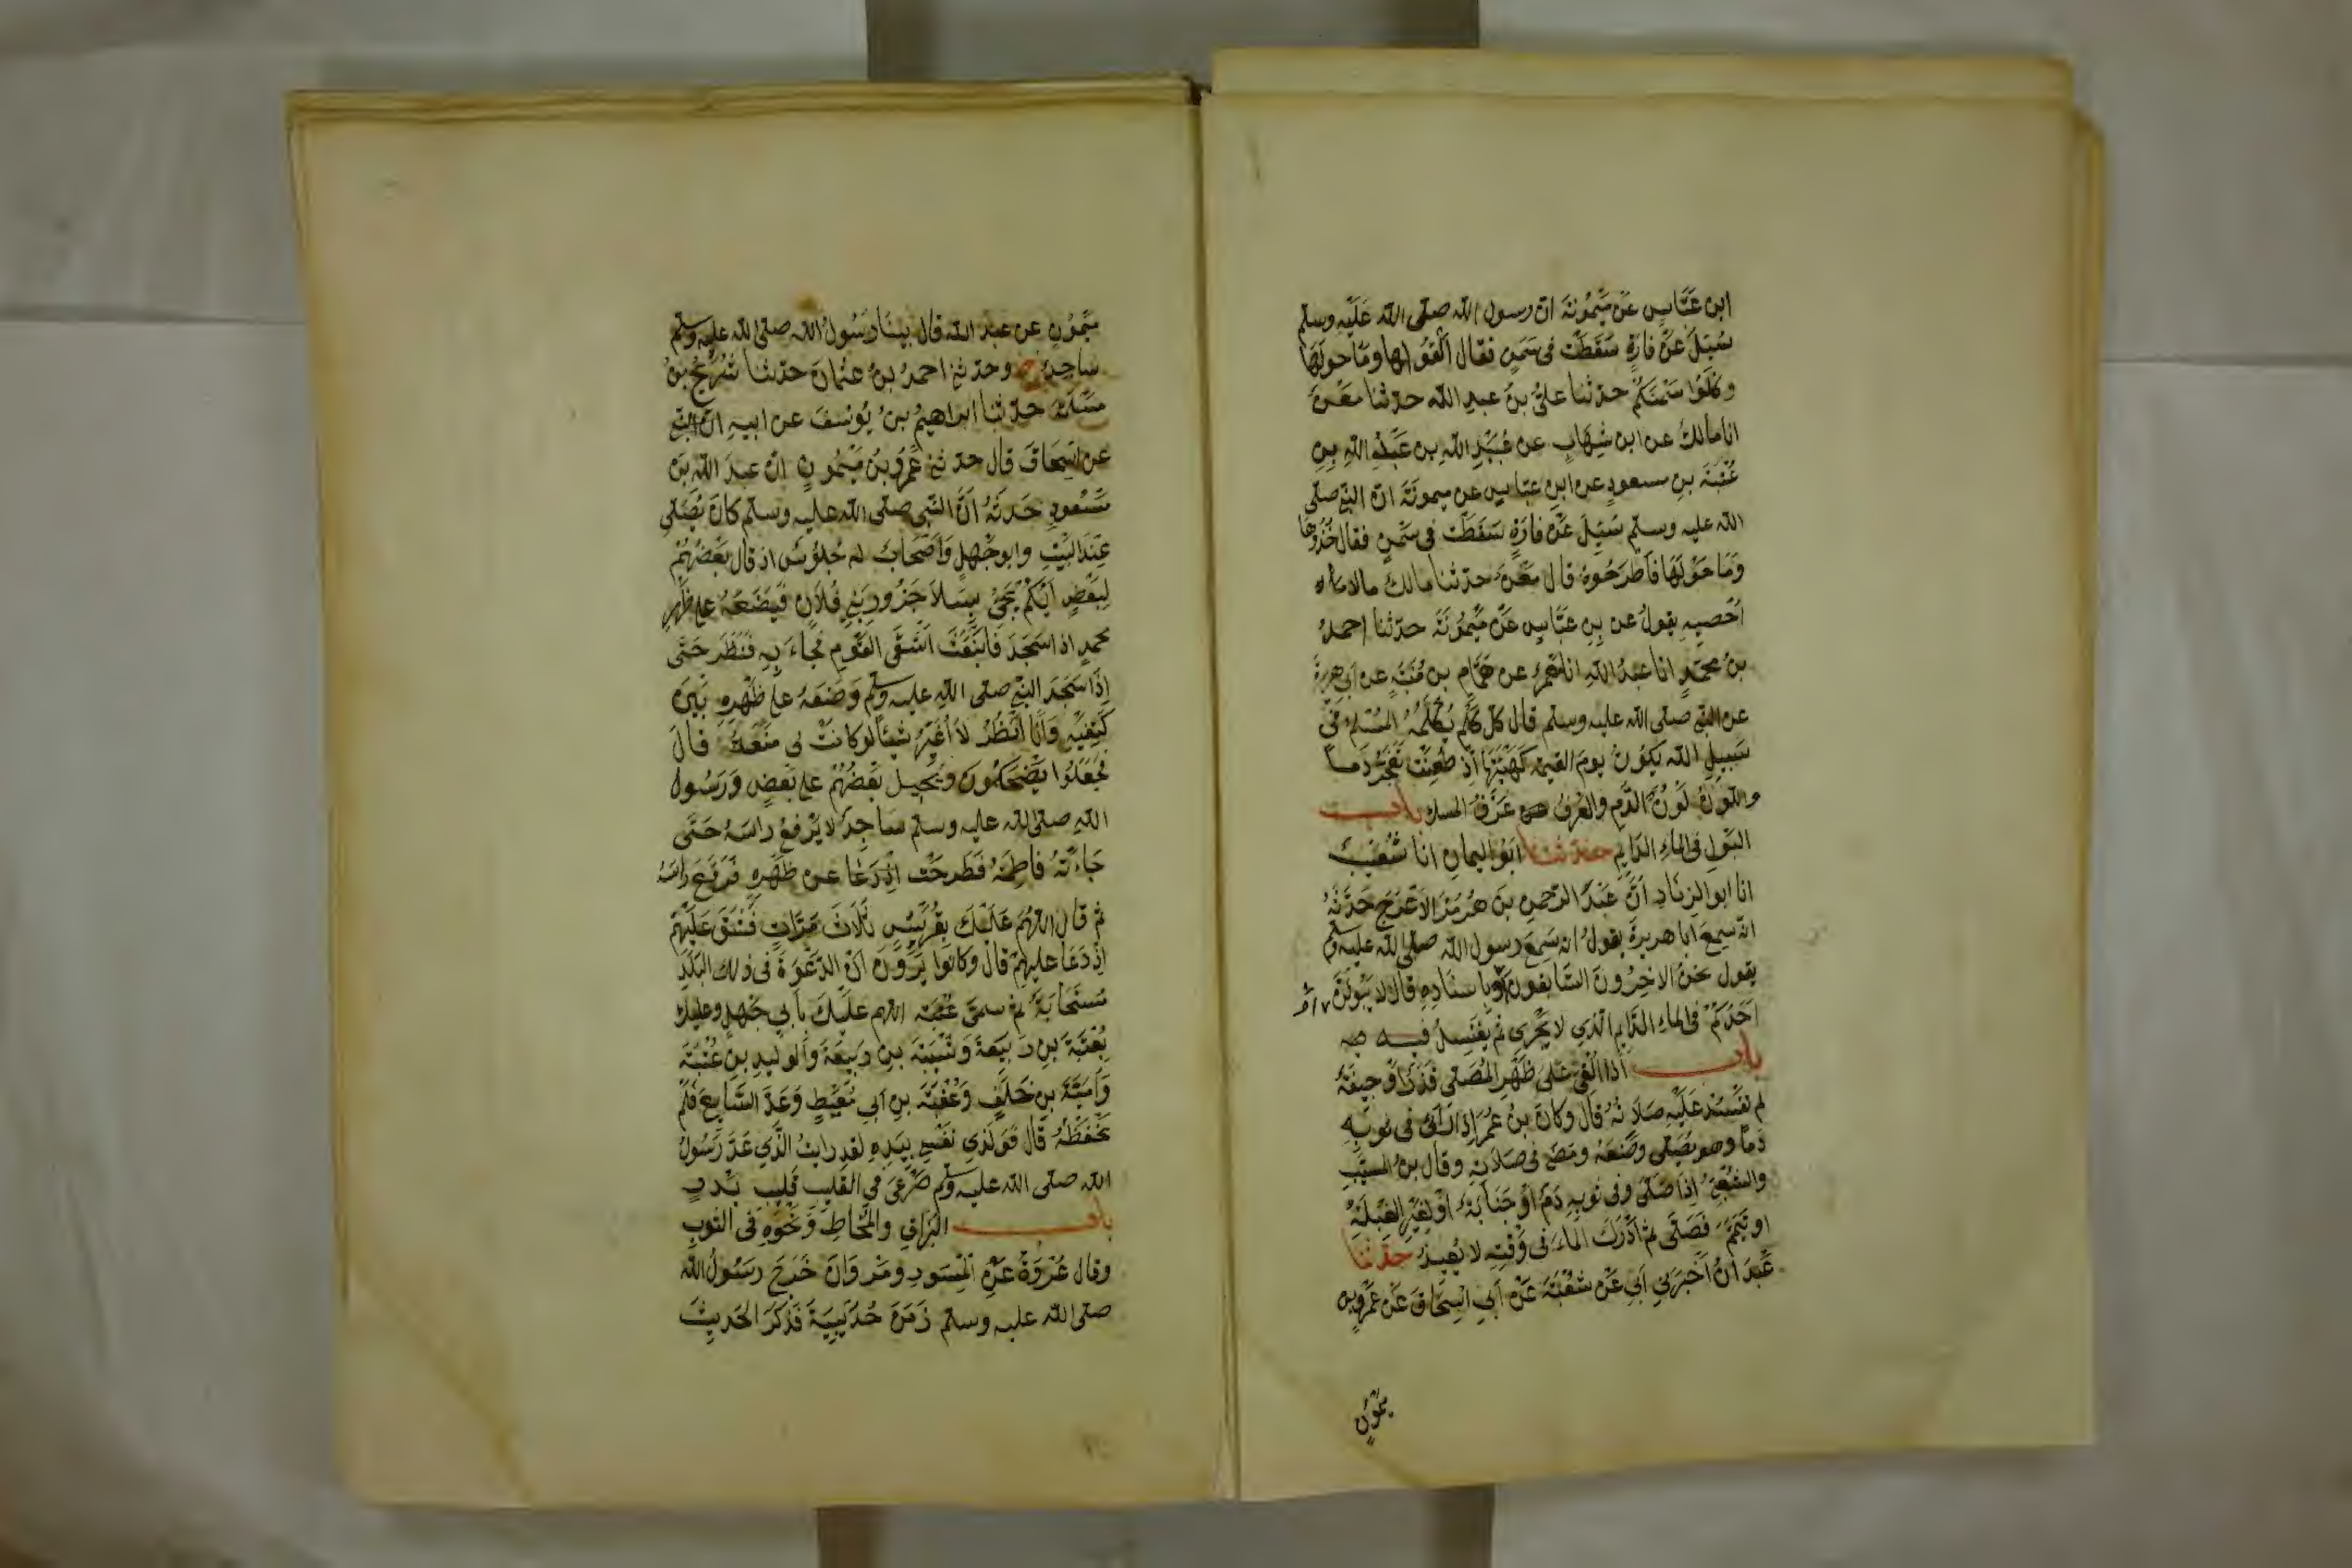 ابن عَبَّاسٍ عَن مَيْمُونَةَ ان رسول الله صلى الله عَلَيْه وسلم
سُئِلَ عَنْ فارَةٍ سَقَطَتْ فى سَمَنٍ فقال اَلْقُوْاها وما حولَها
وكلُوا سَمْنَكُمْ حدثنا علىُّ بنُ عبدِ الله حدثنا مَعْنٌ
انا مالكٌ عن ابن شِهابٍ عن عُبَيْدِ اللهِ بن عَبْدِ اللهِ بنِ
عُتْبَةَ بنِ مسعودٍ عن ابنِ عبّاسٍ عن ميمونَةَ انّ النبىَّ صلى
الله عليه وسلم سُئِلَ عَنْ فارَةٍ سَقَطَتْ فى سَمْنٍ فقال خُذُوها
وَمَا حَوْلَهَا فَاَطْرَحُوهُ قال مَعْنٌ حدثنا مالك مالا
اُحْصِيهِ يقولُ عن بنِ عَبَّاسٍ عَنْ مَيْمُونَةَ حدثنا احمدُ
بنُ محمدٍ انا عبدُ اللهِ انا مَعْمَرٌ عن هَمَّامِ بن مُنَبِّهٍ عن ابى هريرةَ
عن النبى صلى الله عليه وسلم قال كلّ كَلْمٍ يُكْلَمُهُ المُسْلِمُ فى
سَبِيلِ الله يَكُونُ يومَ القيمة كَهَيْئَتِهَا اِذْ طُعِنَتْ تَفَجَّرُ دَماً
واللّونُ لَوْنُ الدَّمِ والعَرْفُ عَرْفُ المسك باب
البَوْلِ فى الماء الدَّايِمِ حدثنا اَبُو اليمانِ انا شُعَيْبٌ
انا ابو الزِنَادِ اَنَّ عَبْدَ الرّحمن بنَ هُرْمُزَ الاَعْرَجَ حَدَّثَهُ
انّه سمِعَ ابا هريرةَ يقولُ انه سَمِعَ رسول الله صلى الله عليه وسلم
يقول نحنُ الاخِرُونَ السَّابقونَ وباسنادِهِ قال لا يَبُولَنَّ
اَحَدُكُمْ فى الماءِ الدَّايِمِ الّذِي لا يَجْرِى ثم يَغْتَسِلُ فيه
باب اذا اُلْقِىَ عَلى ظَهْرِ المُصَلّى قَذَرٌ اَوْ جِيفَةٌ
لم تَفْسُدْ عَلَيْهِ صَلاَتُهُ قال وكانَ بنُ عُمَرَ اِذَا رَأَى فى ثوبِهِ
دَمًا وهو يُصَلّى وضَعَهُ ومَضَى فى صَلاَتِهِ وقال بنُ المسيّبِ
والشَّعْبِىُّ اِذَا صَلّى وفى ثوبِهِ دَمٌ اَوْ جَنَابَةٌ اَوْ لِغَيْرِ القِبْلَةِ
او تَيَمَّمَ فَصَلّى ثم اَدْرَكَ الماءَ فى وَقْتِه لا يُعِيدُ حدثنا
عَبْدَانُ اَخْبَرَنِي اَبِي عَنْ شُعْبَةَ عَنْ اَبِي اسحَاقَ عَنْ عَمْرِو بن
ميمونٍ
مَيْمُونٍ عن عبد الله قال بينا رَسُولُ الله صلى الله عليه وسلم
ساجِدٌ ح وحدثنى احمدُ بنُ عثمانَ حدثنا شُرَيْحُ بنُ
مَسْلَمَةَ حدثنا ابراهيمُ بنُ يُوسُفَ عن ابيه
عن اسحَاقَ قال حدثنى عَمْرُو بنُ مَيْمُونٍ انّ عبدَ اللهِ بنَ
مَسْعودٍ حَدثَهُ اَنَّ النّبِى صلى الله عليه وسلم كانَ يُصَلِّى
عِنْدَ البَيْتِ وابو جَهْلٍ وَاَصْحَابٌ له جُلُوسٌ اذ قالَ بَعْضُهُمْ
لِبَعْضٍ اَيُّكُمْ يَجِئُ بِسَلاَ جَزُورِ بَنِى فُلاَنٍ فَيَضَعَهُ على ظَهْرِ
محمدٍ اذا سَجَدَ فَانْبَعَثَ اَشْقَى القَوْمِ فَجَاءَ بِهِ فَنَظَرَ حَتّى
اِذَا سَجَدَ النبىّ صلى الله عليه وسلم وَضَعَهُ على ظَهْرِهِ بَيْنَ
كَتِفَيْهِ وَاَنَا اَنْظُرُ لاَ اُغَيِّرُ شيئًا لو كانتْ لى مَنْعَةٌ قال
فجَعَلُوا يَضْحَكُونَ ويُحِيلُ بَعْضُهُمْ على بَعْضٍ وَرَسُولُ
اللهِ صلى الله عليه وسلم ساجِدٌ لا يَرْفَعُ راسَهُ حَتّى
جَاءَتْهُ فاطِمَةُ فَطَرَحَتْ عن ظَهْرِهِ فَرَفَعَ راسَهُ
ثم قال اللهُمّ عَلَيْكَ بِقُرَيْشٍ ثَلَاثَ مَرَّاتٍ فَشَقَّ عَلَيْهِمْ
اِذْ دَعَا عليهِمْ قال وكانوا يَرَوْنَ انّ الدّعْوَةَ فى ذلك البَلَدِ
مُسْتَجَابَةٌ ثم سمّى اللهم عليْكَ بأبِي جَهْلٍ وعليك
بِعُتْبَةَ بنِ رَبيعَةَ وَشَيْبَةَ بنِ رَبيعَةَ وَالوَلِيدِ بنِ عُتْبَةَ
وَاُمَيَّةَ بنِ خَلَفٍ وَعُقْبَةَ بنِ اَبِي مُعَيْطٍ وَعَدَّ السَّابِعَ فَلَمْ
نَحْفَظْهُ قال فَوَلَّذِي نَفْسِى بِيَدِهِ لقد رايتُ الّذِي عَدَّ رَسُولُ
الله صلى الله عليه وسلم صَرْعى فى القليب قَلِيبِ بَدْرٍ
باب البُزاقِ والمُخَاطِ وَنَحْوِهِ فى الثوبِ
وقال عُرْوَةُ عَنِ المِسْوَرِ ومَرْوَانَ خَرَجَ رسُولُ الله
صلى الله عليه وسلم زَمَنَ حُدَيْبِيَةَ فَذَكَرَ الحَدِيثَ